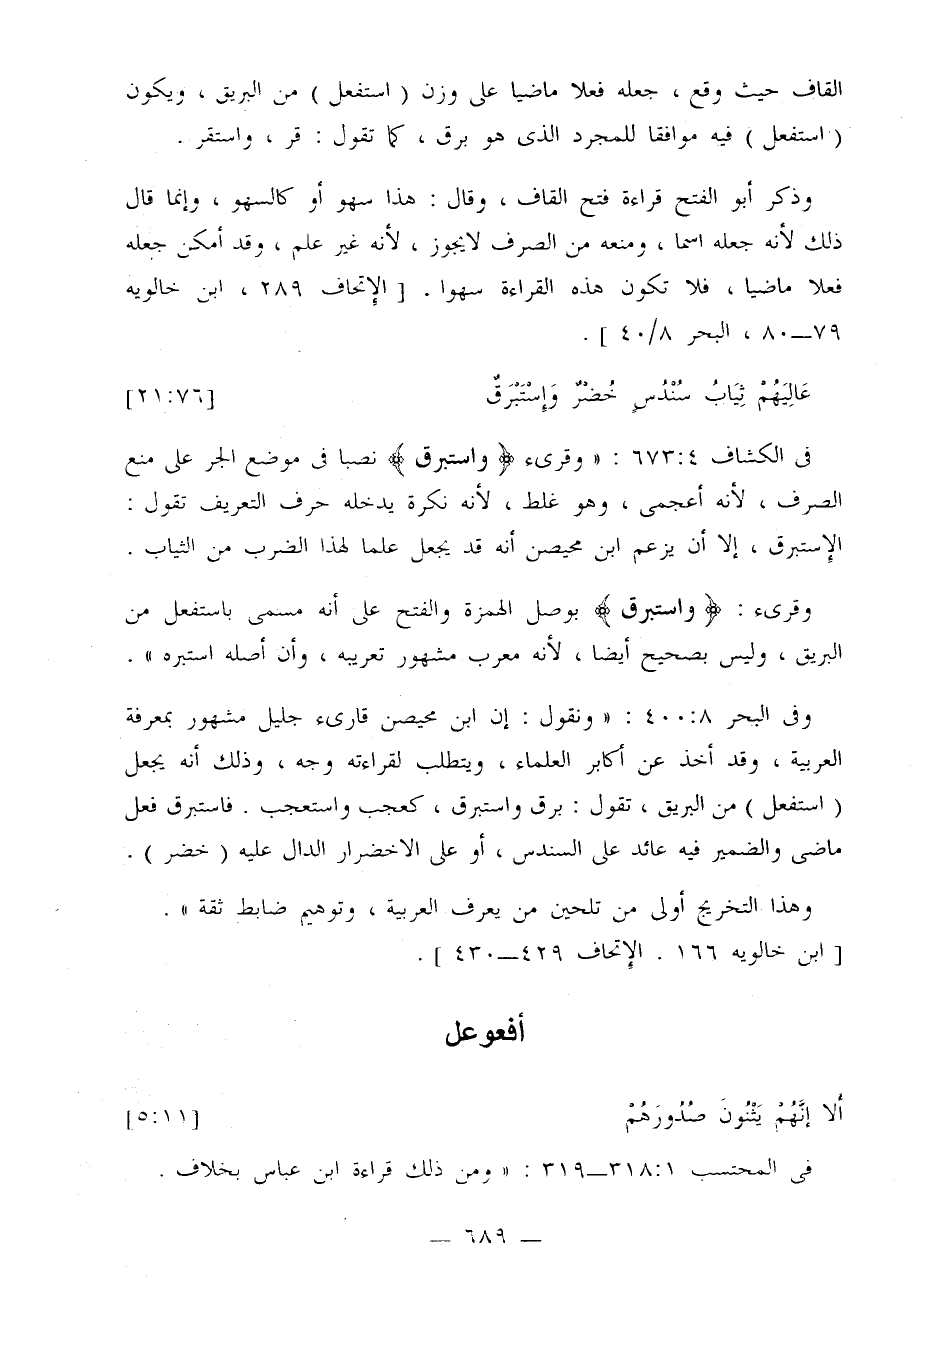 القاف حيث وقع ، جعله فعلا ماضيا على وزن ( استفعل ) من البريق ، ويكون
( استفعل ) فيه موافقا للمجرد الذى هو برق ، كما تقول : قر ، واستقر .
وذكر أبو الفتح قراءة فتح القاف ، وقال : هذا سهو أو كالسهو ، وإنما قال
ذلك لأنه جعله اسما ، ومنعه من الصرف لايجوز ، لأنه غير علم ، وقد أمكن جعله
فعلا ماضيا ، فلا تكون هذه القراءة سهوا . [ الإتحاف ٢٨٩ ، ابن خالويه
٧٩ــ٨٠ ، البحر ٤٠/٨ ] .
عَالِيَهُمْ ثِيَابُ سُنْدُسٍ خُضْرٌ وَإِسْتَبْرَقٌ [٢١:٧٦]
فى الكشاف ٦٧٣:٤ : « وقرىء ﴿ واستبرق ﴾ نصبا فى موضع الجر على منع
الصرف ، لأنه أعجمى ، وهو غلط ، لأنه نكرة يدخله حرف التعريف تقول :
الإستبرق ، إلا أن يزعم ابن محيصن أنه قد يجعل علما لهذا الضرب من الثياب .
وقرىء : ﴿ واستبرق ﴾ بوصل الهمزة والفتح على أنه مسمى باستفعل من
البريق ، وليس بصحيح أيضا ، لأنه معرب مشهور تعريبه ، وأن أصله استبره » .
وفى البحر ٤٠٠:٨ : « ونقول : إن ابن محيصن قارىء جليل مشهور بمعرفة
العربية ، وقد أخذ عن أكابر العلماء ، ويتطلب لقراءته وجه ، وذلك أنه يجعل
( استفعل ) من البريق ، تقول : برق واستبرق ، كعجب واستعجب . فاستبرق فعل
ماضى والضمير فيه عائد على السندس ، أو على الاخضرار الدال عليه ( خضر ) .
وهذا التخريج أولى من تلحين من يعرف العربية ، وتوهيم ضابط ثقة » .
[ ابن خالويه ١٦٦ . الإتحاف ٤٢٩ــ٤٣٠ ] .
أفعوعل
أَلا إِنَّهُمْ يَثْنُونَ صُدُورَهُمْ [٥:١١]
فى المحتسب ٣١٨:١ــ٣١٩ : « ومن ذلك قراءة ابن عباس بخلاف .
— ٦٨٩ —